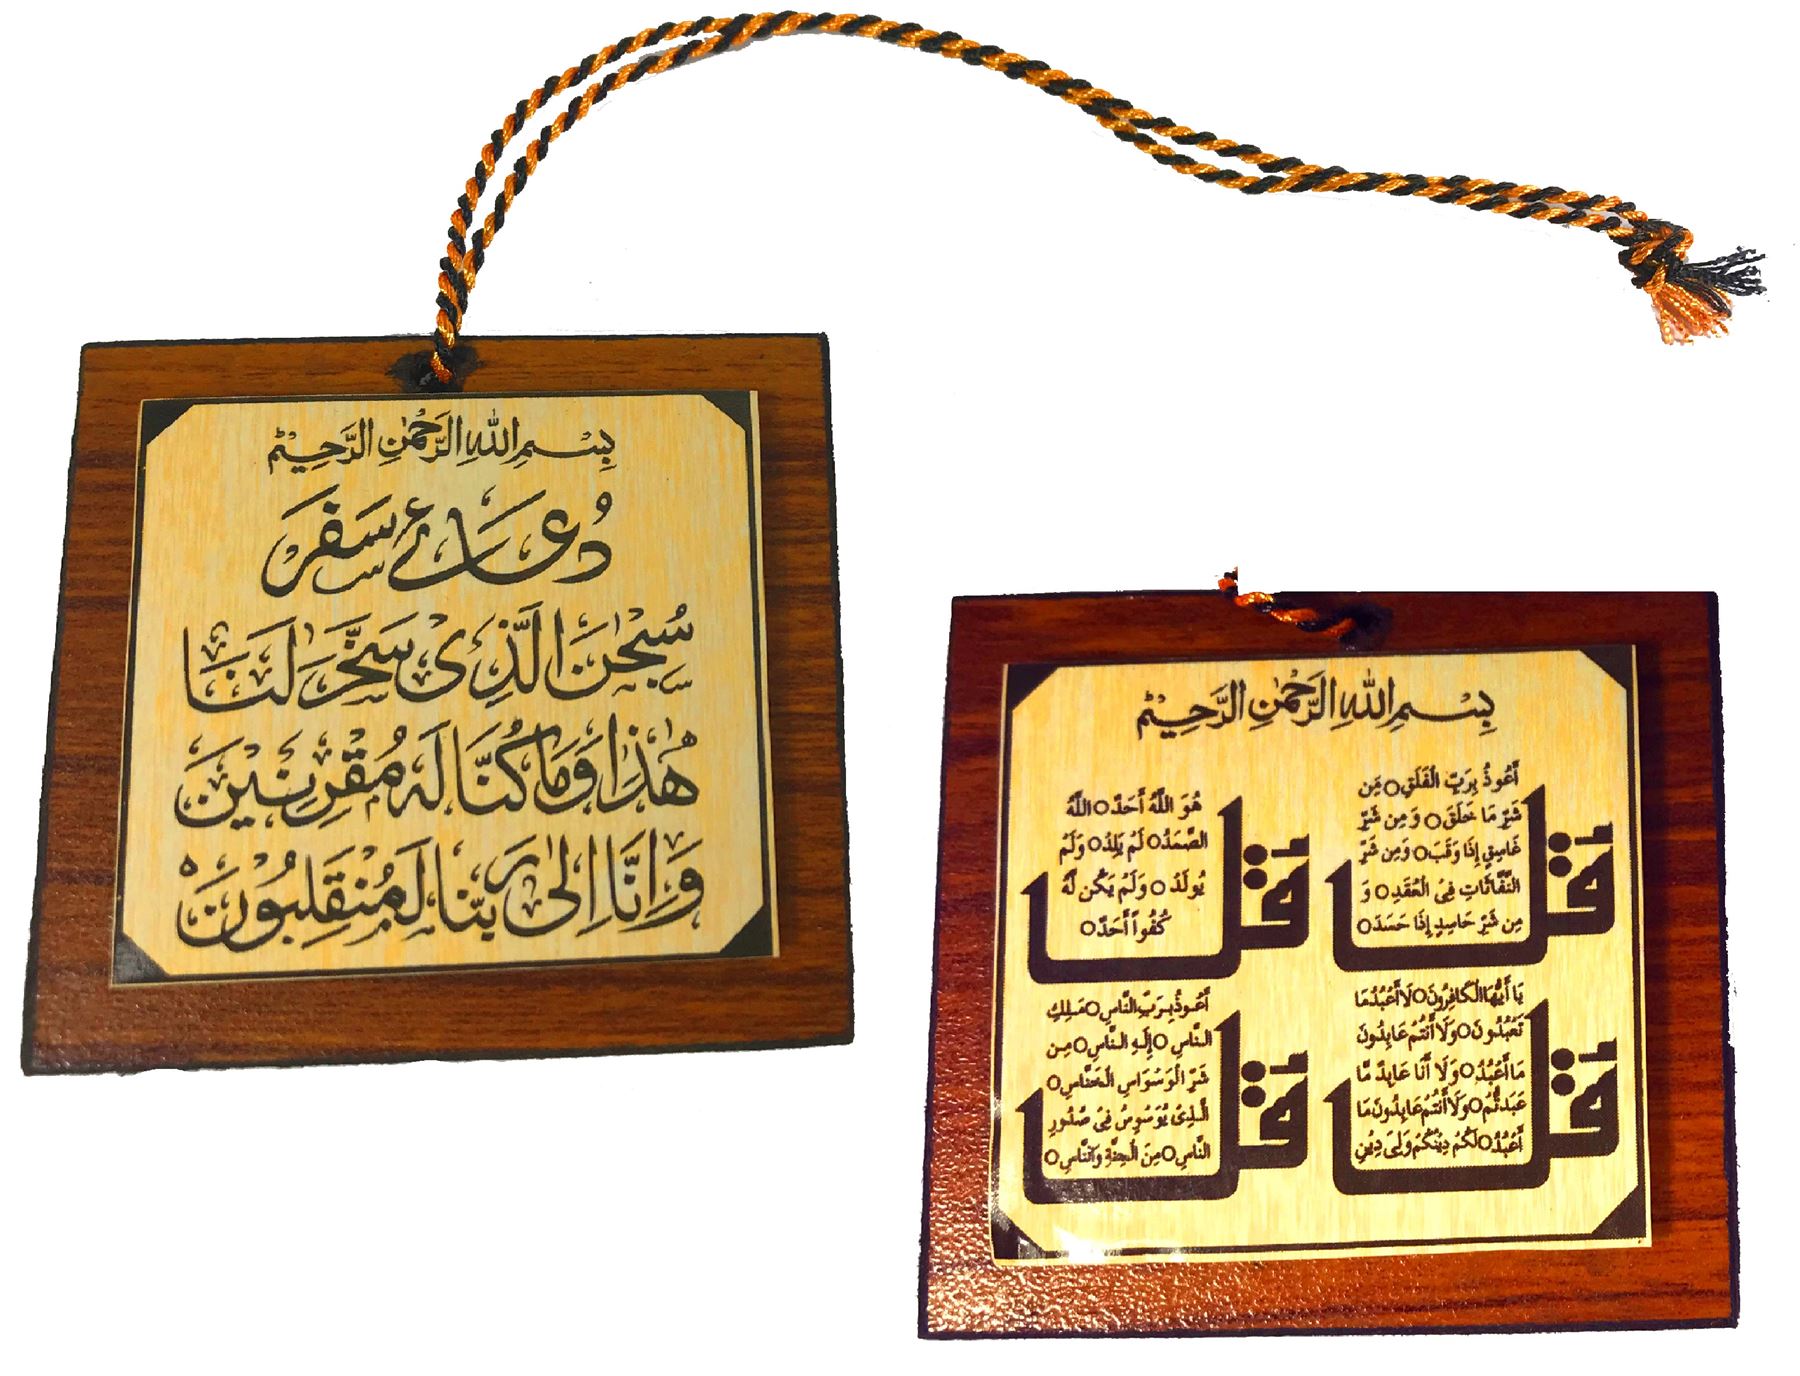 بِسْمِ اللهِ الرَّحْمٰنِ الرَّحِيْمِ
دُعَائے سَفَر
سُبْحٰنَ الَّذِیْ سَخَّرَ لَنَا
هٰذَا وَمَا كُنَّا لَهٗ مُقْرِنِيْنَ
وَاِنَّا اِلٰی رَبِّنَا لَمُنْقَلِبُوْنَ
بِسْمِ اللهِ الرَّحْمٰنِ الرَّحِيْمِ
قُلْ
أَعُوذُ بِرَبِّ الْفَلَقِ○مِن
شَرِّ مَا خَلَقَ○ وَمِن شَرِّ
غَاسِقٍ إِذَا وَقَبَ○وَمِن شَرِّ
النَّفَّاثَاتِ فِي الْعُقَدِ○ وَ
مِن شَرِّ حَاسِدٍ إِذَا حَسَدَ○
قُلْ
هُوَ اللَّهُ أَحَدٌ○اللَّهُ
الصَّمَدُ○ لَمْ يَلِدْ○ وَلَمْ
يُولَدْ○ وَلَمْ يَكُن لَّهُ
كُفُواً أَحَدٌ○
قُلْ
يَا أَيُّهَا الْكَافِرُونَ○لَا أَعْبُدُ مَا
تَعْبُدُونَ○وَلَا أَنتُمْ عَابِدُونَ
مَا أَعْبُدُ○وَلَا أَنَا عَابِدٌ مَّا
عَبَدتُّمْ○وَلَا أَنتُمْ عَابِدُونَ مَا
أَعْبُدُ○لَكُمْ دِينُكُمْ وَلِيَ دِينِ
قُلْ
أَعُوذُ بِرَبِّ النَّاسِ○مَلِكِ
النَّاسِ○إِلَهِ النَّاسِ○مِن
شَرِّ الْوَسْوَاسِ الْخَنَّاسِ○
الَّذِي يُوَسْوِسُ فِي صُدُورِ
النَّاسِ○مِنَ الْجِنَّةِ وَالنَّاسِ○